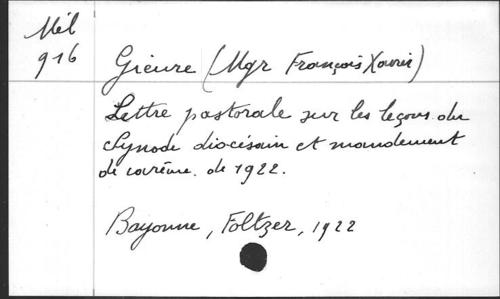 Mél
916
Gieure (Mgr François Xavier)
Lettre pastorale sur les leçons du
Synode diocésain et mandement
de carême de 1922.
Bayonne, Foltzer, 1922